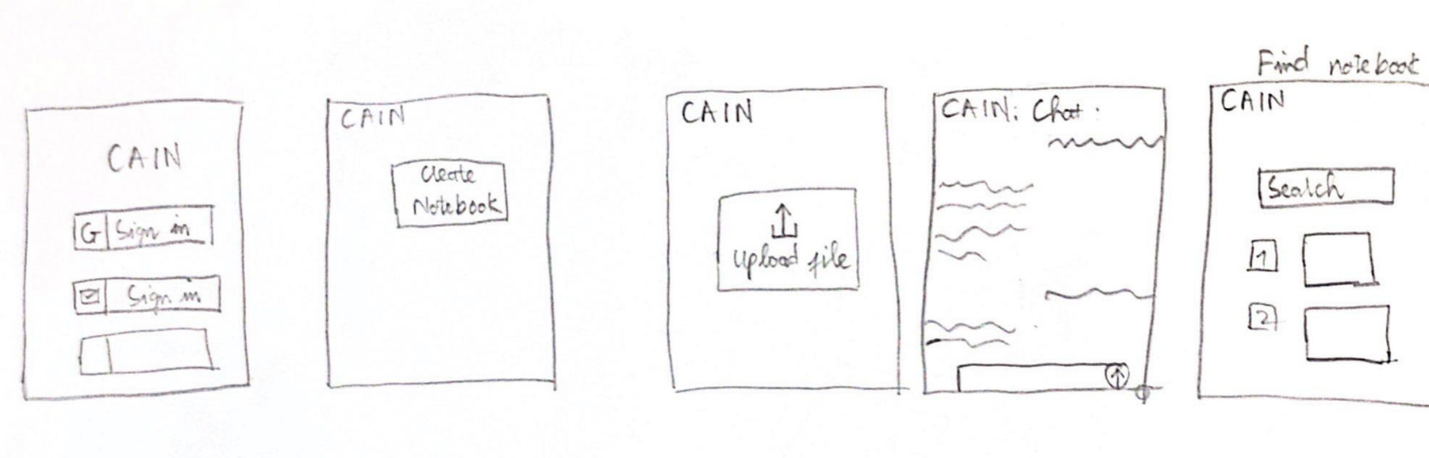 CAIN
G Sign in
Sign in
CAIN
Create
Notebook
CAIN
upload file
CAIN: Chat.
Find notebook
CAIN
Search
1
2